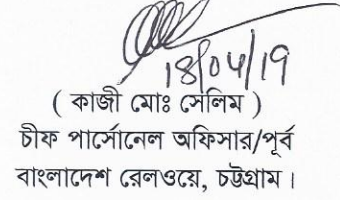 18/04/19
( কাজী মোঃ সেলিম )
চীফ পার্সোনেল অফিসার/পূর্ব
বাংলাদেশ রেলওয়ে, চট্টগ্রাম।